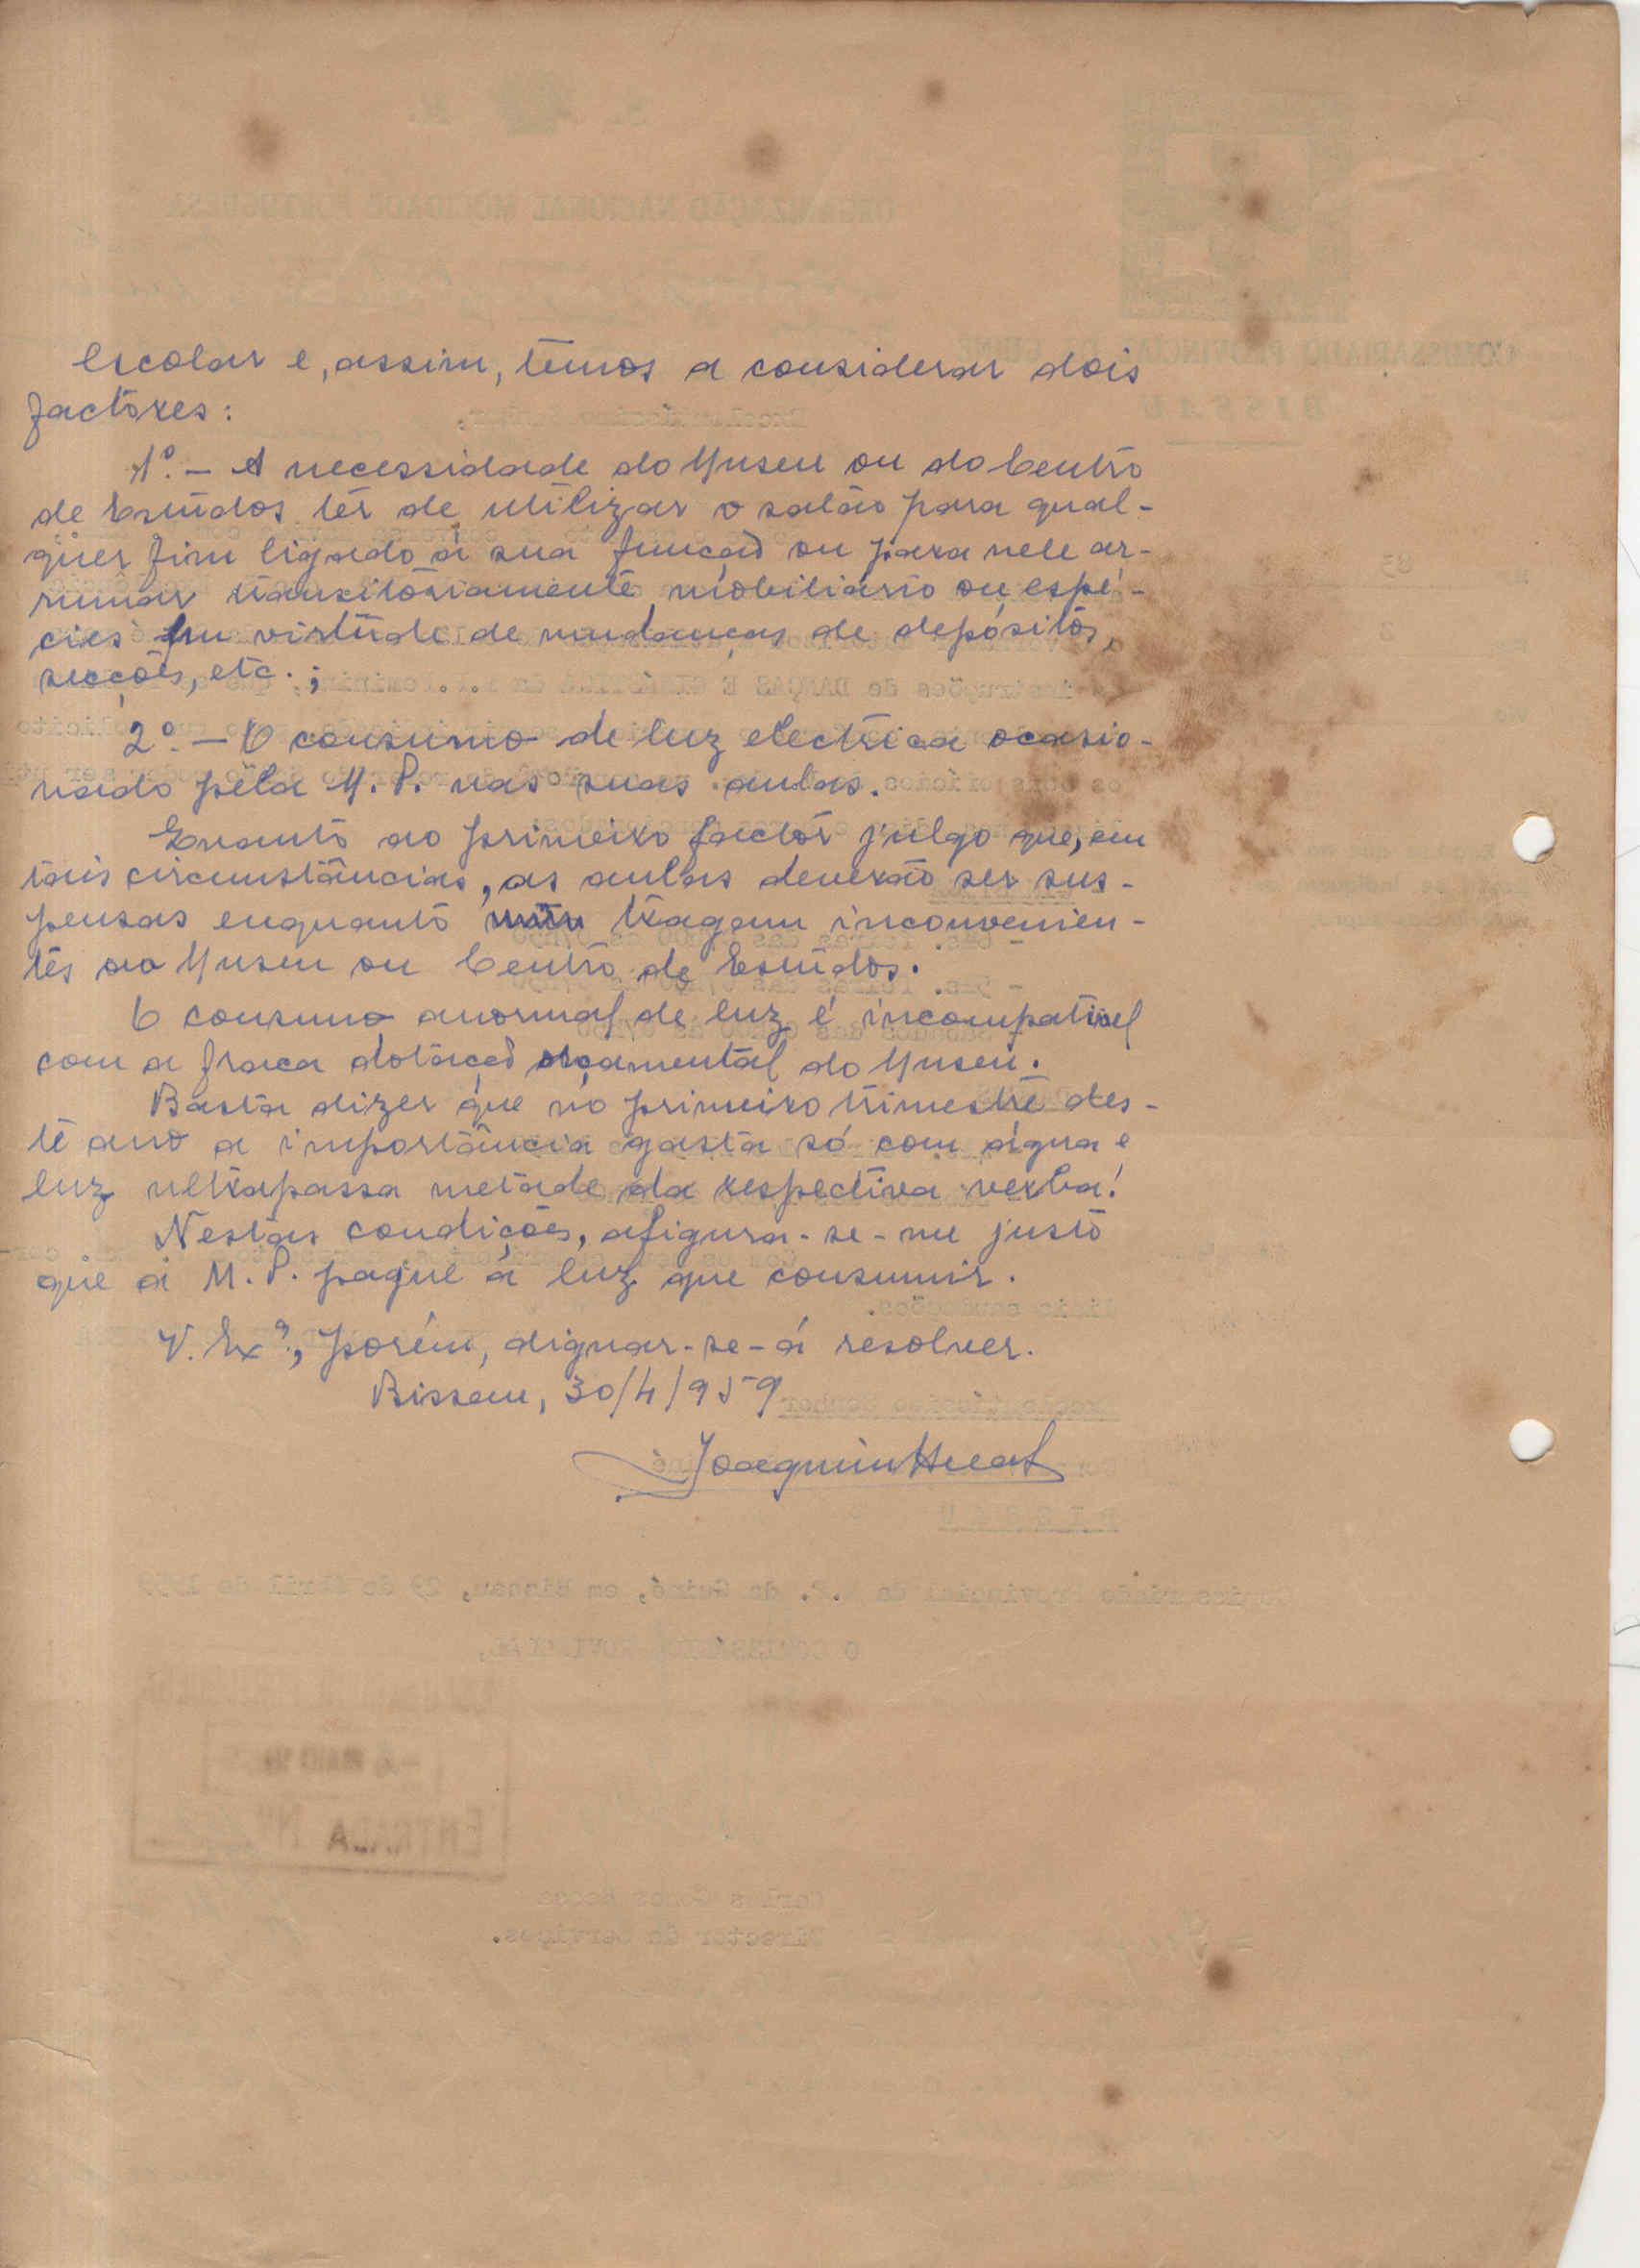 escolar e, assim, temos a considerar dois
factores:
1º. — A necessidade do Museu ou do Centro
de Estudos ter de utilizar o salão para qual-
quer fim ligado à sua função ou para nele ar-
rumar transitòriamente mobiliário ou espé-
cies em virtude de mudanças de depósitos,
secções, etc.;
2º. — O consumo de luz electrica ocasio-
nado pela M. P. nas suas aulas.
Quanto ao primeiro factor julgo que, em
tais circunstâncias, as aulas deverão ser sus-
pensas enquanto tragam inconvenien-
tes ao Museu ou Centro de Estudos.
O consumo anormal de luz é incompativel
com a fraca dotação orçamental do Museu.
Basta dizer que no primeiro trimestre des-
te ano a importância gasta só com água e
luz ultrapassa metade da respectiva verba!
Nestas condições, afigura-se-me justo
que a M. P. pague a luz que consumir.
V. Exª, porém, dignar-se-á resolver.
Bissau, 30/4/959
Joaquim